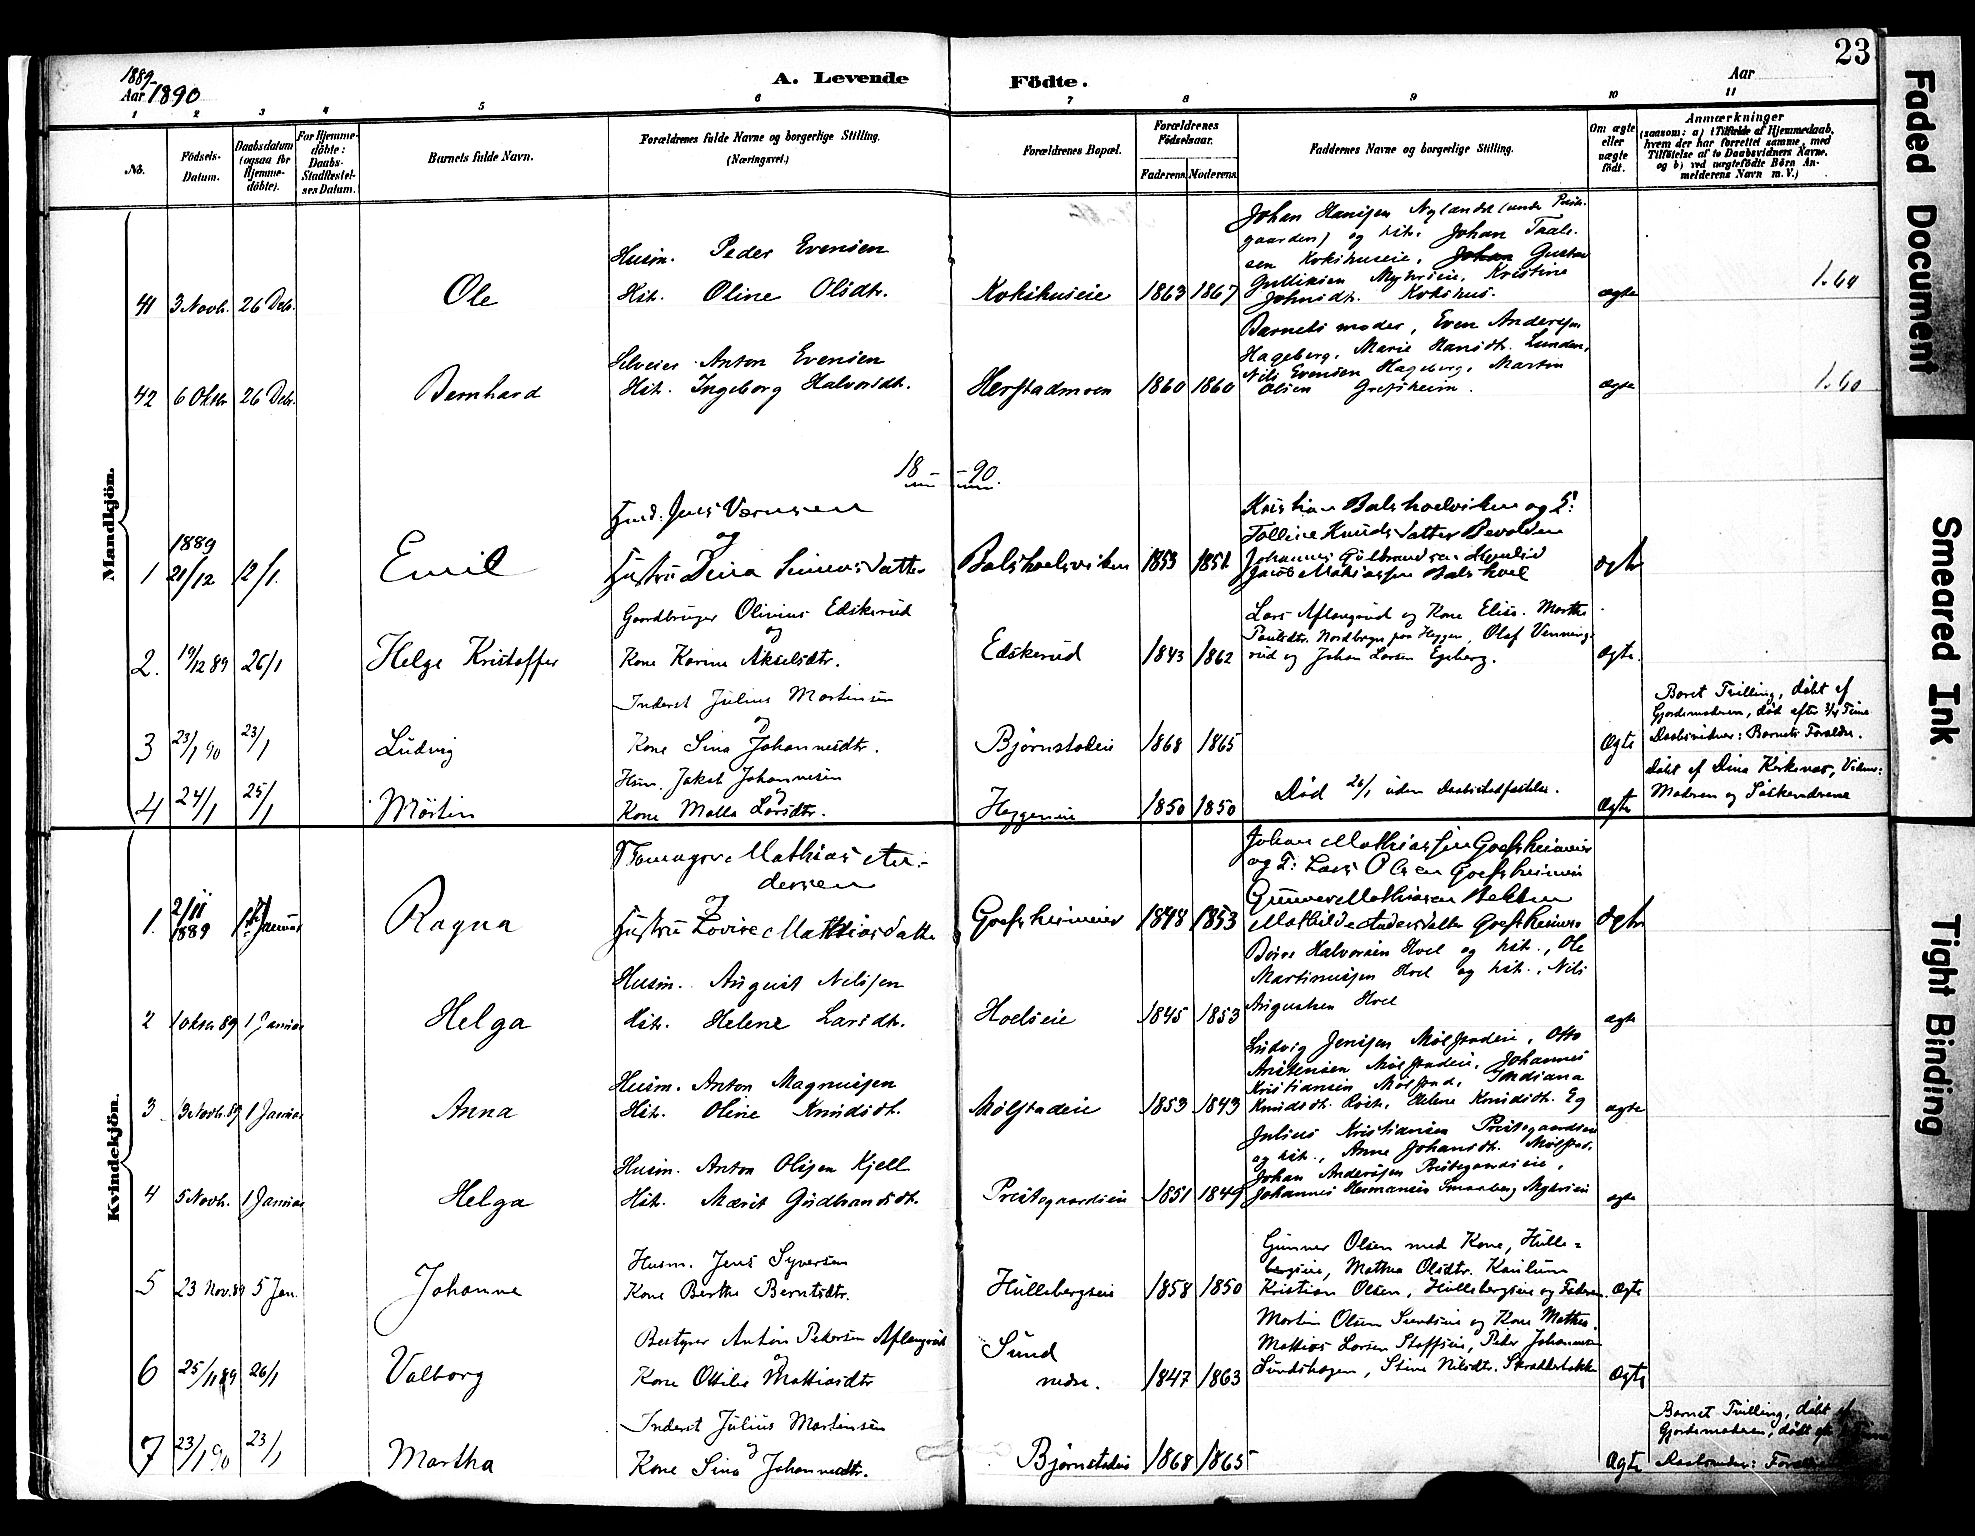 23
1889
Aar 1890
A. Levende Födte.
Aar
1 2 3 4 5 6 7 8 9 10 11
No.
Födsels-Datum.
Daabsdatum (ogsaa for Hjemme-döbte).
For Hjemme-döbte: Daabs-Stadfæstel-ses Datum.
Barnets fulde Navn.
Forældrenes fulde Navne og borgerlige Stilling.
(Næringsvei.)
Forældrenes Bopæl.
Forældrenes Födselsaar.
Faderens Moderens
Faddernes Navne og borgerlige Stilling.
Om ægte eller uægte födt.
Anmærkninger
(saasom: a) i Tilfælde af Hjemmedaab,
hvem der har forrettet samme, med
Tilföielse af to Daabsvidners Navne,
og b) ved uægtefödt Börn An-
melderens Navn m. V.)
Mandkjön.
Johan Hansen Nylandst (under Præste-
gaarden) og hst. Johan Taale-
Husm. Peder Evensen
sen Kokshuseie, Johan Gustav
Gulliksen Myhrseie, Kristine
41 3 Novb. 26 Deb. Ole Hst. Oline Olsdtr. Kokshuseie 1863 1867 Johnsdt. Kokshus. ægte 1.60
Barnets moder, Even Andersen
Selveier Anton Evensen
Hageberg, Marie Hansdt. Lunden,
Nils Evensen Hageberg, Martin
42 6 Oktbr 26 Deb. Bernhard Hst. Ingeborg Halvorsdt. Herstadmoen 1860 1860 Olsen Grefsheim. ægte 1.60
18 — — 90
Jens
Kristian Balshoelviken og F:
1889
og
1 21/12 12/1. Emil Hustru Dina Simensdatter Balshoelsviken 1853 1851 ægte
Gaardbruger Olivius Edskerud
og
Lars Aflangrud og Kone Elise. Marthe
Paulsdtr. Nordbergn paa Heggen, Olaf Venning-
2. 19/12 89 26/1 Helge Kristoffer Kone Karine Akselsdtr. Edskerud 1843 1862 rud og Johan Larsen Egeberg. Ægte.
Inderst Julius Martinsen
og
Barnet Tvilling, døbt af
Gjordemoderen, død efter 3/4 Time
3 23/1 90 23/1 Ludvig Kone Sina Johannesdtr. Bjørnstadeie 1868 1865 Ægte Daabsvidner: Barnets Forældre.
Husm. Jakob Johannesen
og
Døbt af Dina Kirkenær, Vidne:
4 24/1 25/1 Martin Kone Malla Larsdtr. Heggeneie 1850 1850 Død 26/1 uden Daabsstadfæstelse. Ægte Moderen og Søskendrene
Kvindekjön.
Mathias An-
dersen
og
Johan Mathiassen Grefsheimeie
og F: Lars Olsen Grefsheimeie
Gunner Mathiasen Bekken
1. 2/11 1889 1 Januar Ragna Hustru Lovise Mathiasdatter Grefsheimeie 1848 1853 Mathilde Andersdatter Grefsheimeie Ægte
Husm. August Nilssen
Børre Halvorsen Hoel og hst., Ole
Martinussen Hoel og hst., Nils
2 1 oktbr 89 1 Januar Helga Hst. Helene Larsdt. Hoelseie 1845 1853 Augustsen Hoel ægte
Husm. Anton Magnussen
Ludvig Jensen Mølstadeie, Otto
Kristensen Mølstadeie, Johannes
Kristiansen Mølstad, Indiana
3 3 Novb. 89 1 Januar Anna Hst. Oline Knudsdt. Mølstadeie 1853 1843 Knudsdt. Helene Knudsdt. Eg ægte
Husm. Anton Olsen Kjell
Julius Kristiansen Prestegaardseie
og hst., Anne Johansdt. Mølstad,
Johan Andersen Prestegaardseie,
4 5 Novb. 1 Januar Helga Hst. Mærit Gudbrandsdt. Prestegaardseie 1851 1849 Johannes Hermansen Smaaberg Myhrseie ægte
Husm. Jens Syversen
Gunner Olsen med Kone, Hulle-
bergseie, Mathea Olsdtr. Kaulum
5 23 Nov. 89 5 Jan. Johanne Kone Berthe Berntsdtr. Hullebergseie 1858 1850 Kristian Olsen, Hullebergseie og Faderen. Ægte
Bestyrer Anton Pedersen Aflangrud
og
Martin Olsen Sundseie og Kone Mathea.
Mathias Larsen Stafseie, Peder Johannesen
6 25/11 89 26/1 Valborg Kone Ottilie Mathiasdtr Sund nedre. 1847 1863 Sundshagen, Stine Nilsdtr. Skrabberbakke Ægte
Inderst Julius Martinsen
og
Barnet Tvilling, døbt af
Gjordemoderen,
7 23/1 90 23/1 Martha Kone Sina Johannesdtr. Bjørnstadeie 1868 1865 Ægte
Faded Document
Smeared Ink
Tight Binding